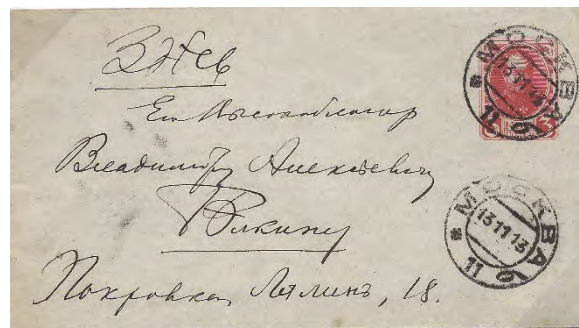 Здесь
Его Высокоблагор
Владимиру Алексеевичу
Покровка, Лялинъ, 18.
МОСКВА
13 11 13
11
МОСКВА
13 11 13
11